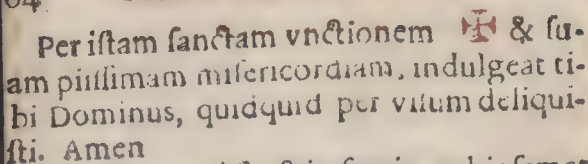 64.
Per iſtam ſanctam vnctionem ✠ & ſu-
am piiſſimam miſericordiam, indulgeat ti-
bi Dominus, quidquid per viſum deliqui-
ſti. Amen